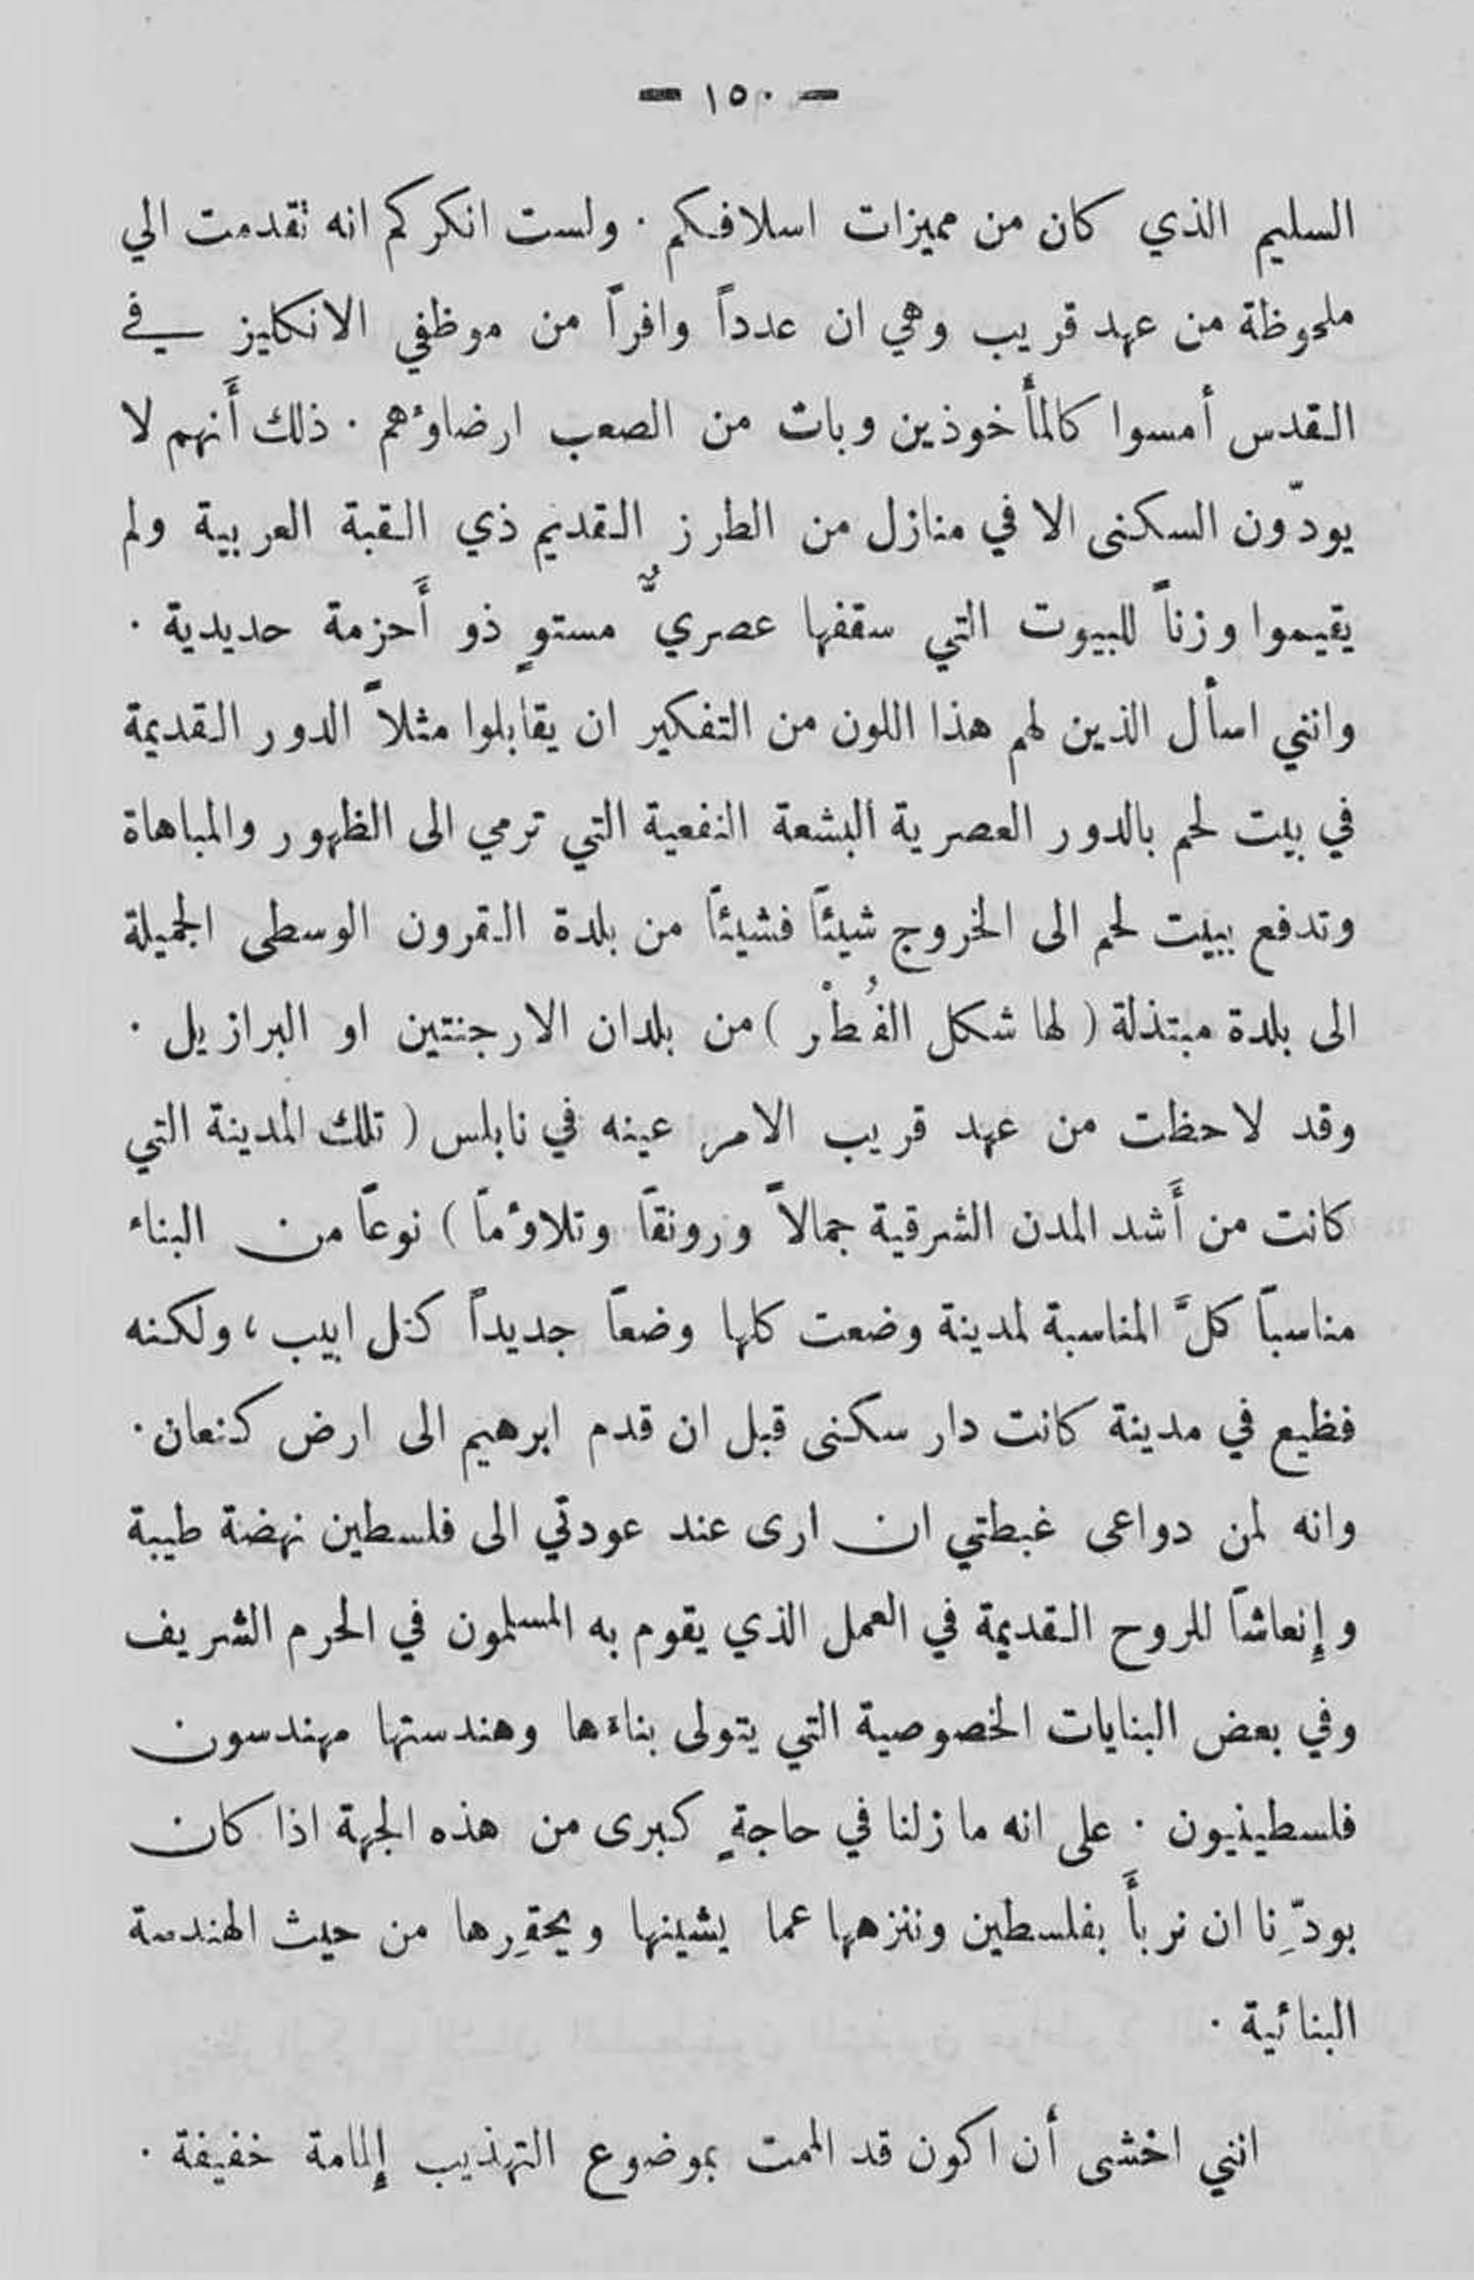 — ١٥٠ —
السليم الذي كان من مميزات اسلافكم . ولست انكركم انه تقدمت الي
ملحوظة من عهد قريب وهي ان عدداً وافراً من موظفي الانكليز في
القدس أمسوا كالمأخوذين وبات من الصعب ارضاؤهم . ذلك أَنهم لا
يودّون السكنى الا في منازل من الطرز القديم ذي القبة العربية ولم
يقيموا وزناً للبيوت التي سقفها عصريٌّ مستوٍ ذو أَحزمة حديدية .
وانني اسأل الذين لهم هذا اللون من التفكير ان يقابلوا مثلاً الدور القديمة
في بيت لحم بالدور العصرية البشعة النفعية التي ترمي الى الظهور والمباهاة
وتدفع ببيت لحم الى الخروج شيئاً فشيئاً من بلدة القرون الوسطى الجميلة
الى بلدة مبتذلة ( لها شكل الفُطْر ) من بلدان الارجنتين او البرازيل .
وقد لاحظت من عهد قريب الامر عينه في نابلس ( تلك المدينة التي
كانت من أَشد المدن الشرقية جمالاً ورونقاً وتلاؤماً ) نوعاً من البناء
مناسباً كلَّ المناسبة لمدينة وضعت كلها وضعاً جديداً كتل ابيب ، ولكنه
فظيع في مدينة كانت دار سكنى قبل ان قدم ابرهيم الى ارض كنعان .
وانه لمن دواعى غبطتي ان ارى عند عودتي الى فلسطين نهضة طيبة
وإِنعاشاً للروح القديمة في العمل الذي يقوم به المسلمون في الحرم الشريف
وفي بعض البنايات الخصوصية التي يتولى بناءها وهندستها مهندسون
فلسطينيون . على انه ما زلنا في حاجةٍ كبرى من هذه الجهة اذا كان
بودِّنا ان نربأَ بفلسطين وننزهها عما يشينها ويحقرِها من حيث الهندسة
البنائية .
انني اخشى أن اكون قد الممت بموضوع التهذيب إِلمامة خفيفة .